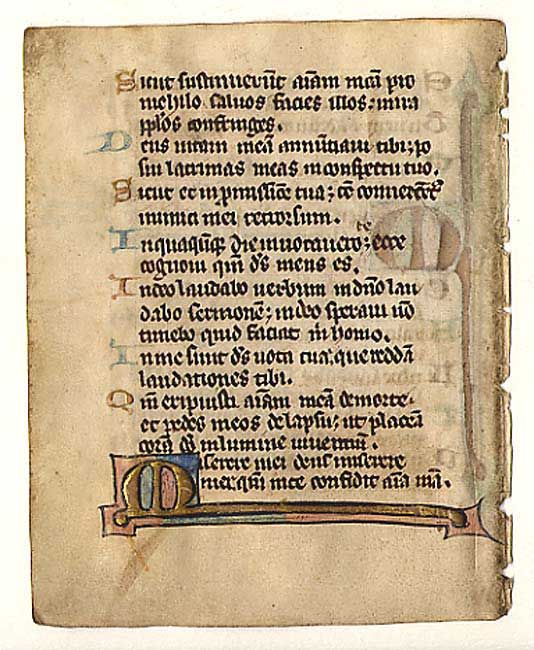 Sicut sustinuerūt aīam meā pro
nichilo saluos facies illos; in ira
pp̄los confringes.
Deus uitam meā annūtiaui tibi; po
sui lacrimas meas in conspectu tuo.
Sicut et in pmissiōe tua; tc̄ conuertēt᷑
inimici mei retrorsum.
In quacūq; die inuocauero te; ecce
cognoui qm̄ ds̄ meus es.
In deo laudabo uerbum in dn̄o lau
dabo sermonē; in deo speraui nō
timebo quid faciat m̄ homo.
In me sunt ds̄ uota tua; que reddā
laudationes tibi.
Qm̄ eripuisti aīam meā de morte;
et pedes meos de lapsu; ut placeā
corā dō in lumine uiuentiū.
Miserere mei deus miserere
mei; qm̄ in te confidit aīa mā.